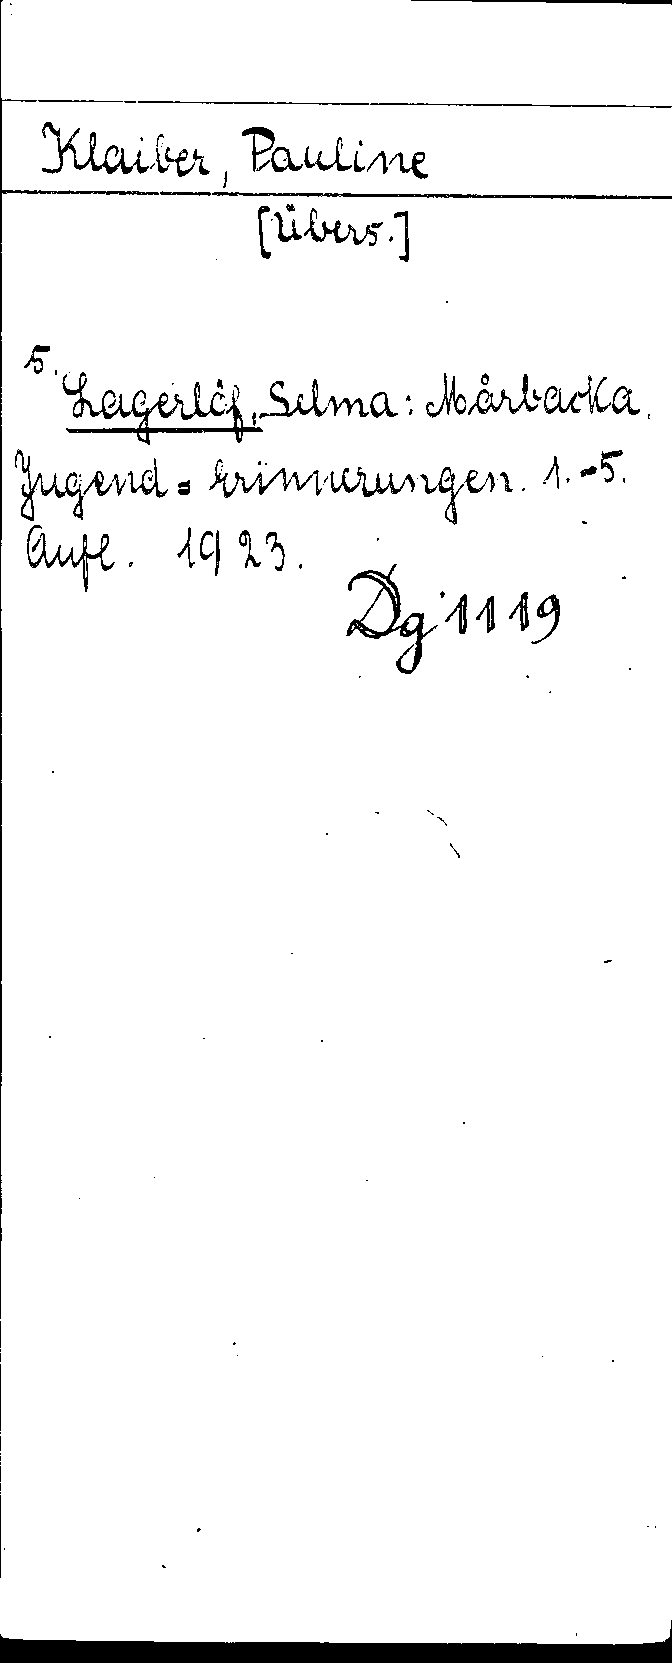 Klaiber, Pauline
[Übers.]
5.
Lagerlöf, Selma: Mårbacka.
Jugend=Erinnerungen. 1.-5.
Aufl. 1923.
Dg 1119